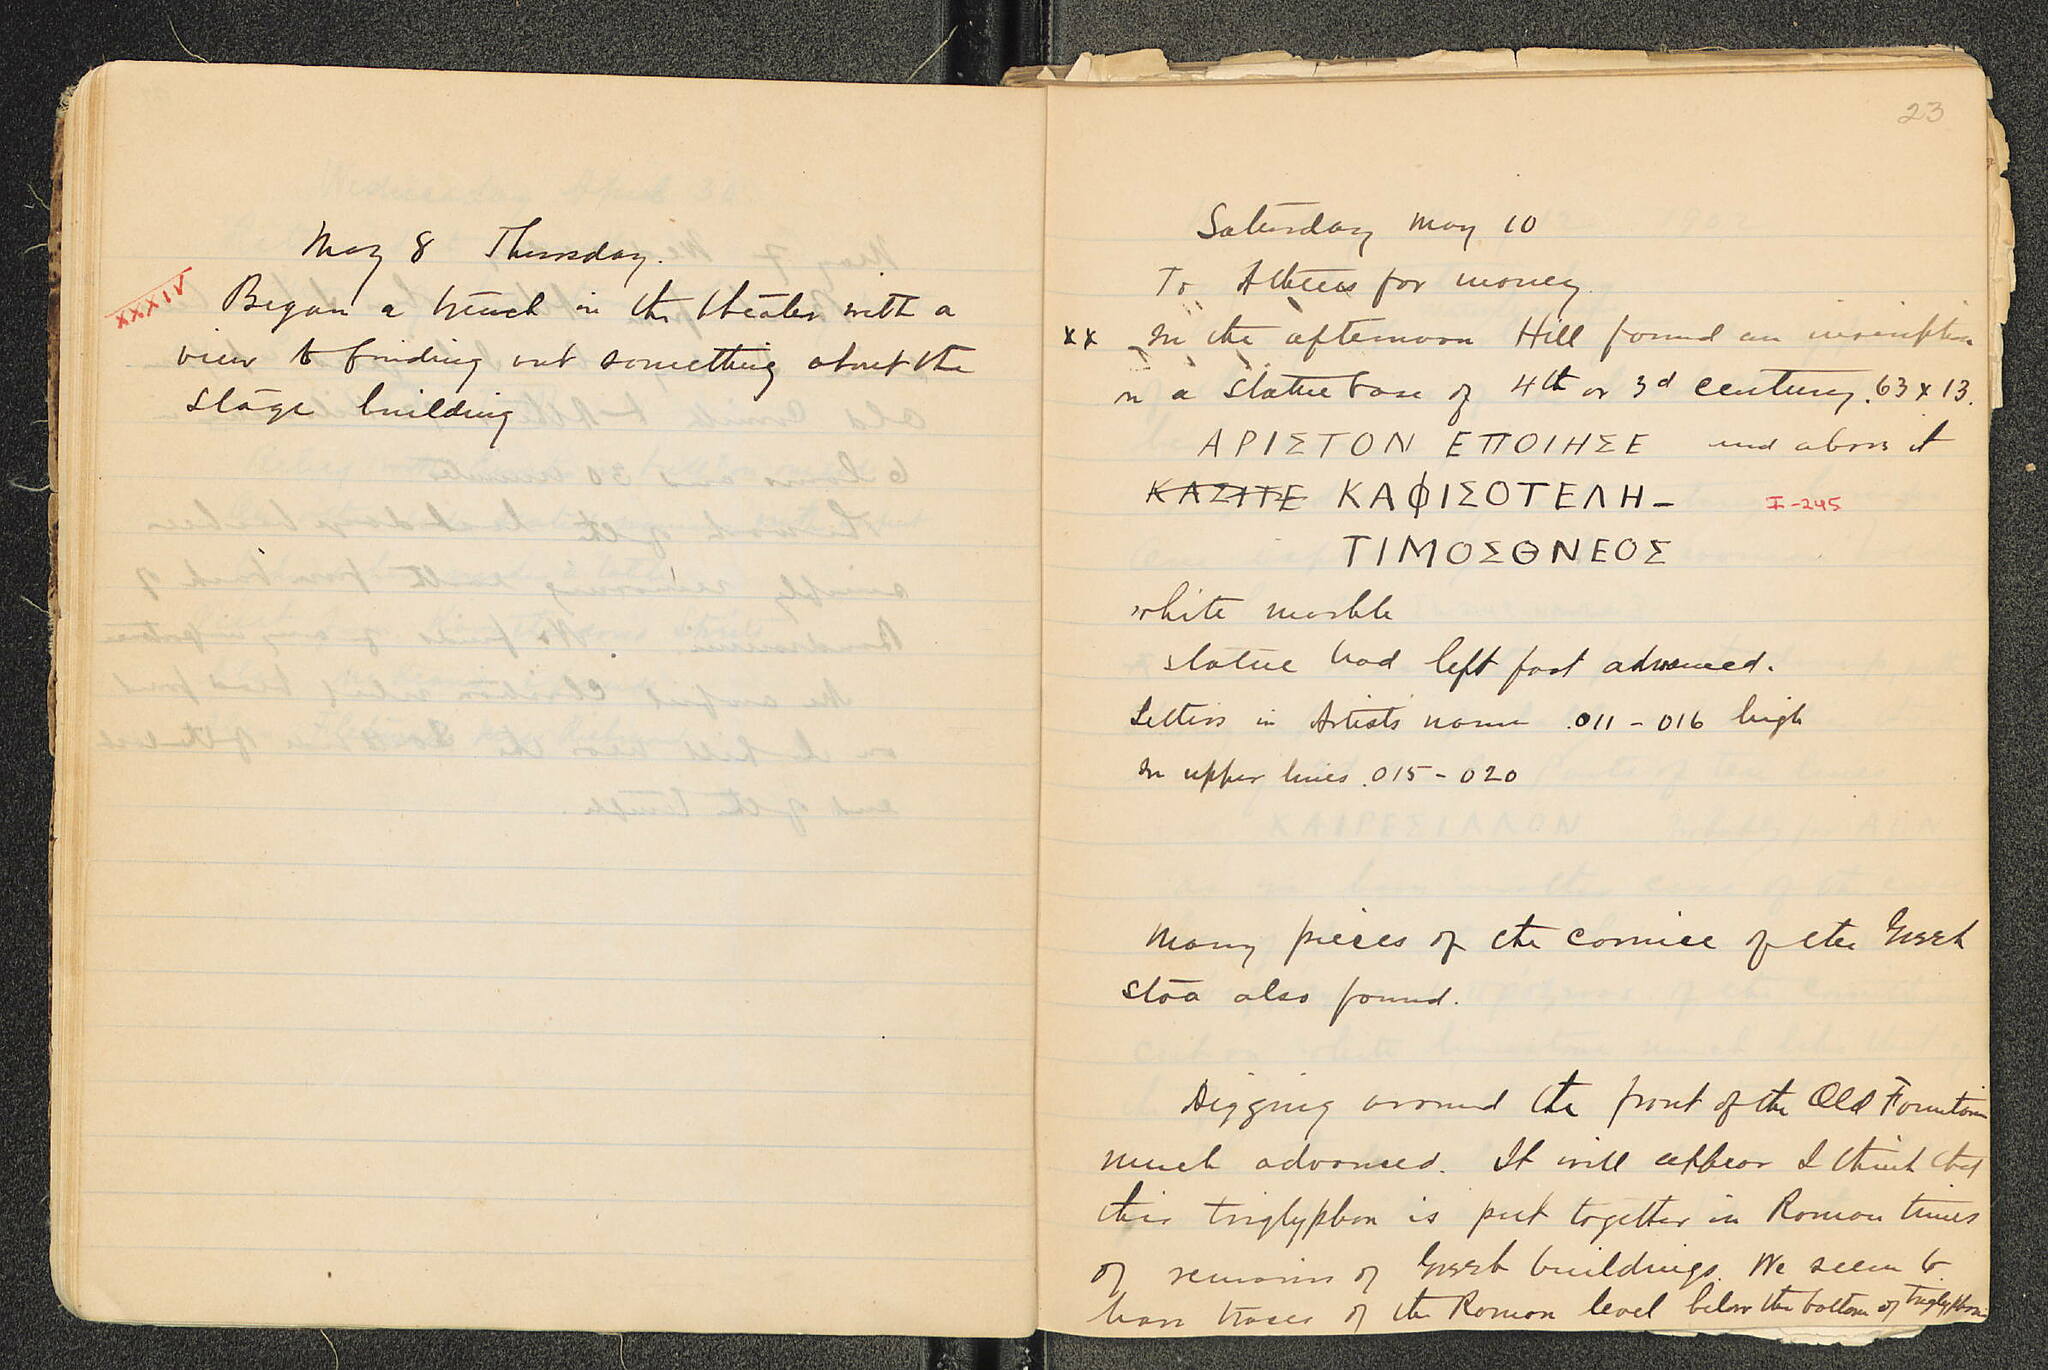 May 8 Thursday.
XXXIV
Began a trench in the theater with a
view to finding out something about the
stage building
23
Saturday May 10
To Athens for money.
xx In the afternoon Hill found an inscription
on a statue base of 4th or 3d century .63 x 13.
ΑΡΙΣΤΟΝ ΕΠΟΙΗΣΕ and above it
ΚΑΦΙΣΟΤΕΛΗ-
I-245
ΤΙΜΟΣΘΝΕΟΣ
white marble
statue had left foot advanced.
Letters in Artists name .011-016 high
In upper lines .015-020
Many pieces of the cornice of the Greek
stoa also found.
Digging around the front of the Old Fountain
much advanced. It will appear I think that
this triglyphon is put together in Roman times
of remains of Greek buildings. We seem to
have traces of the Roman level below the bottom of triglyphon